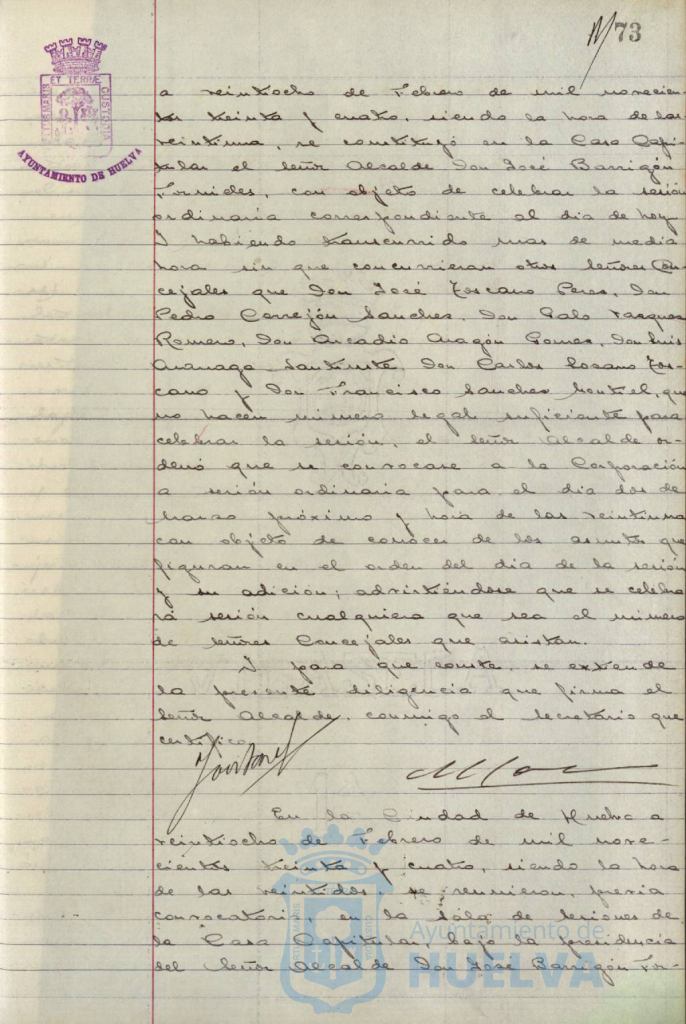 73
ET TERRÆ
PORTUS MARIS
CUSTODIA
AYUNTAMIENTO DE HUELVA
a veintiocho de Febrero de mil novecien-
tos treinta y cuatro, siendo la hora de las
veintiuna, se constituyó en la Casa Capi-
tular el señor Alcalde Don José Barrigón
Fornieles, con objeto de celebrar la sesión
ordinaria correspondiente al dia de hoy.
Y habiendo transcurrido mas de media
hora sin que concurrieran otros Señores Con-
cejales que Don José Toscano Peres, Don
Pedro Cerrejón Sanches, Don Galo Vazques
Romero, Don Arcadio Aragón Gomes, Don Luis
Don Carlos Lozano Tos-
cano y Don Francisco Sanches Montiel, que
no hacen número legal suficiente para
celebrar la sesión, el Señor Alcalde or-
denó que se convocase a la Corporación
a sesión ordinaria para el dia dos de
Marzo próximo y hora de las veintiuna
con objeto de conocer de los asuntos que
figuran en el orden del dia de la sesión
y su adición; advirtiéndose que se celebra-
rá sesión cualquiera que sea el número
de Señores Concejales que asistan.
Y para que conste, se extiende
la presente diligencia que firma el
Señor Alcalde, conmigo el Secretario que
certifico.
En la Ciudad de Huelva a
veintiocho de Febrero de mil nove-
cientos treinta y cuatro, siendo la hora
de las veintidos, se reunieron, previa
convocatoria, en la sala de sesiones de
la Casa Capitular, bajo la presidencia
del Señor Alcalde Don José Barrigón For-
Ayuntamiento de
HUELVA